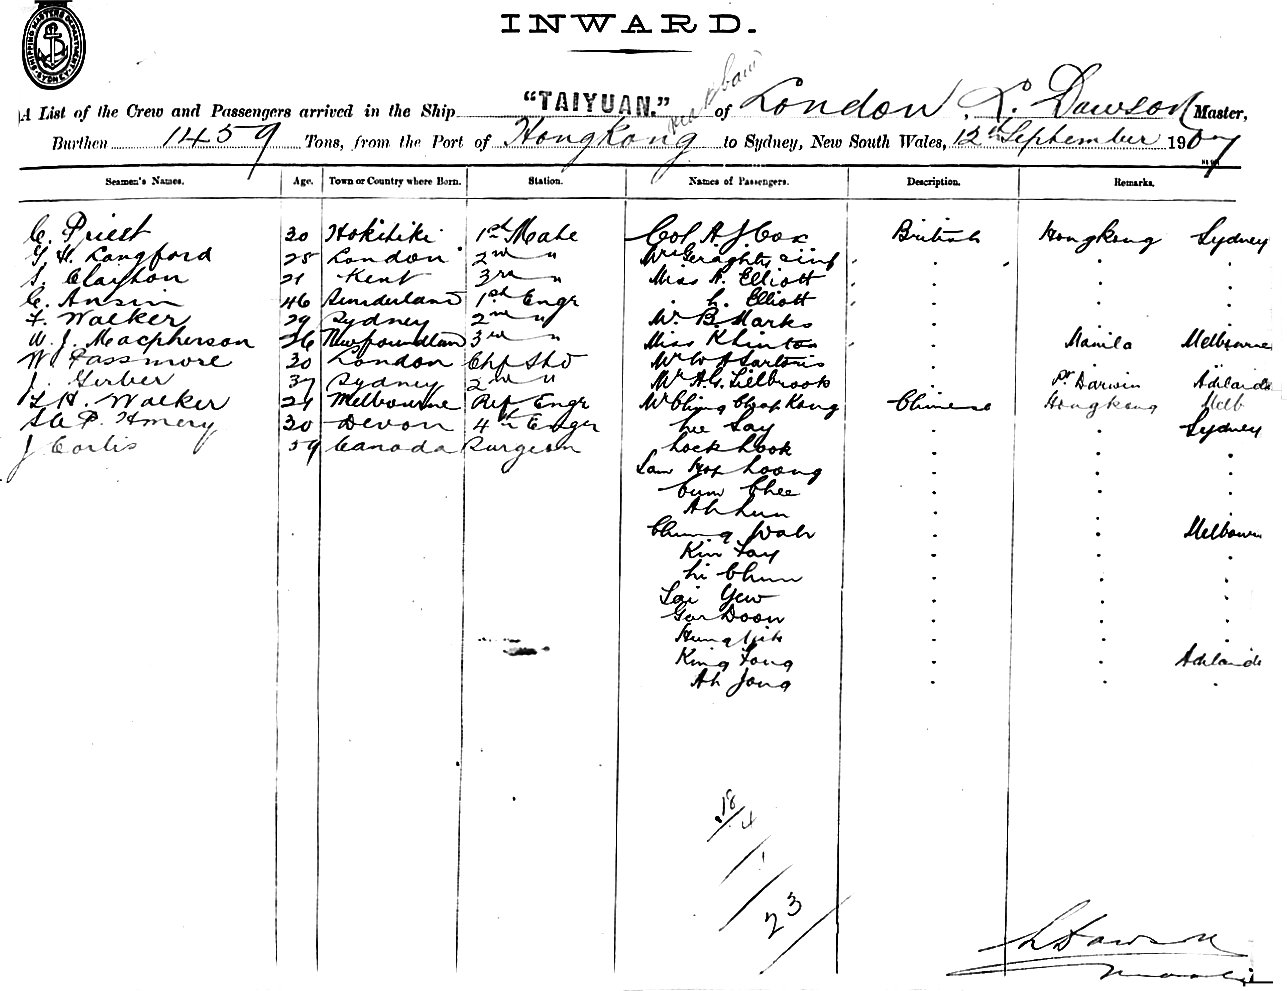 SHIPPING MASTERS DEPARTMENT SYDNEY
INWARD.
A List of the Crew and Passengers arrived in the Ship "TAIYUAN." of London, L. Dawson Master,
Burthen 1459 Tons, from the Port of Hong Kong to Sydney, New South Wales, 12th September 1907
Seamen's Names. Age. Town or Country where Born. Station. Names of Passengers. Description. Remarks.
C. Priest 30 Hokitiki 1st Mate Col A. J. Cox British Hong Kong Sydney
G. H. Langford 25 London 2nd " Mrs Geraghty " " "
S. Clayton 21 Kent 3rd " Miss A. Elliott " " "
C. 46 Sunderland 1st Engr " L. Elliott " " "
F. Walker 29 Sydney 2nd " Mr B. Marks " " "
W. J. Macpherson 26 Newfoundland 3rd " Miss K Linton " Manila Melbourne
W. Passmore 30 London Chf Std Mr W J Sartoris " " "
J. Gerber 37 Sydney 2nd " Mr A. G. " pr Darwin Adelaide
L H. Walker 24 Melbourne Ref Engr Mr Ching Cheap Kong Chinese Hongkong Melb
P. 30 Devon 4th Engr Lee Say " " Sydney
J Corlis 59 Canada Surgeon Lock Look " " "
Sam Hop Loong " " "
Cum Chee " " "
Ah Lun " " "
Chung Wah " " Melbourne
Kim Fay " " "
Li Chun " " "
Lai Yew " " "
Gar Doon " " "
Hung " " "
King Fong " " Adelaide
Ah Jong " " "
18/4
1
23
L Dawson
Master